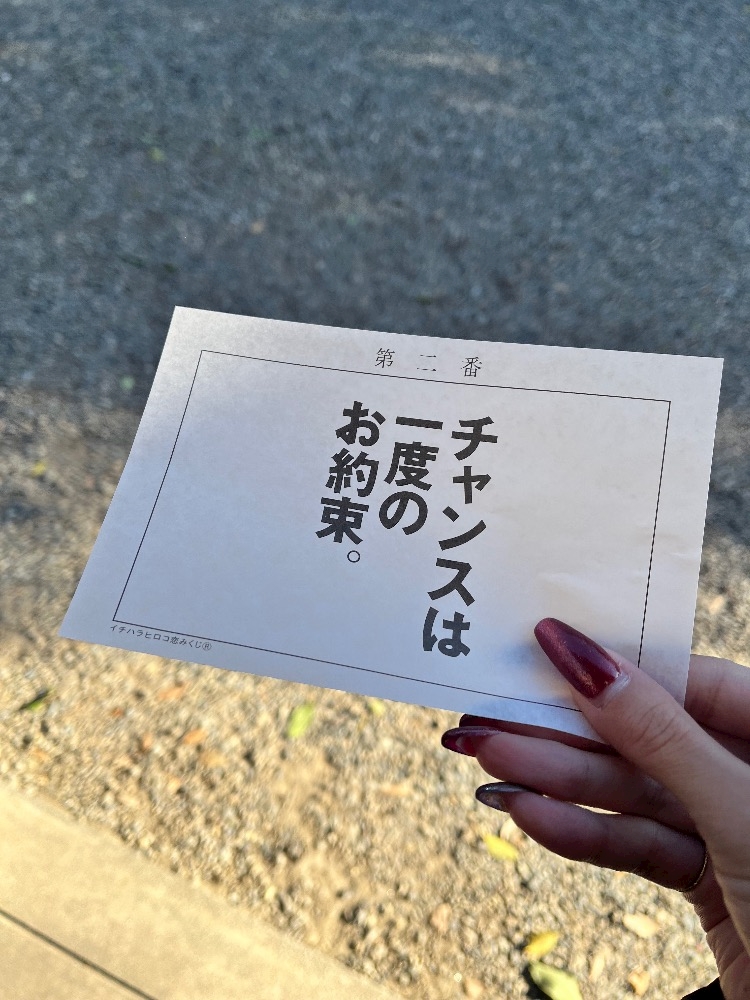 第二番
チャンスは
一度の
お約束。
イチハラヒロコ恋みくじ®